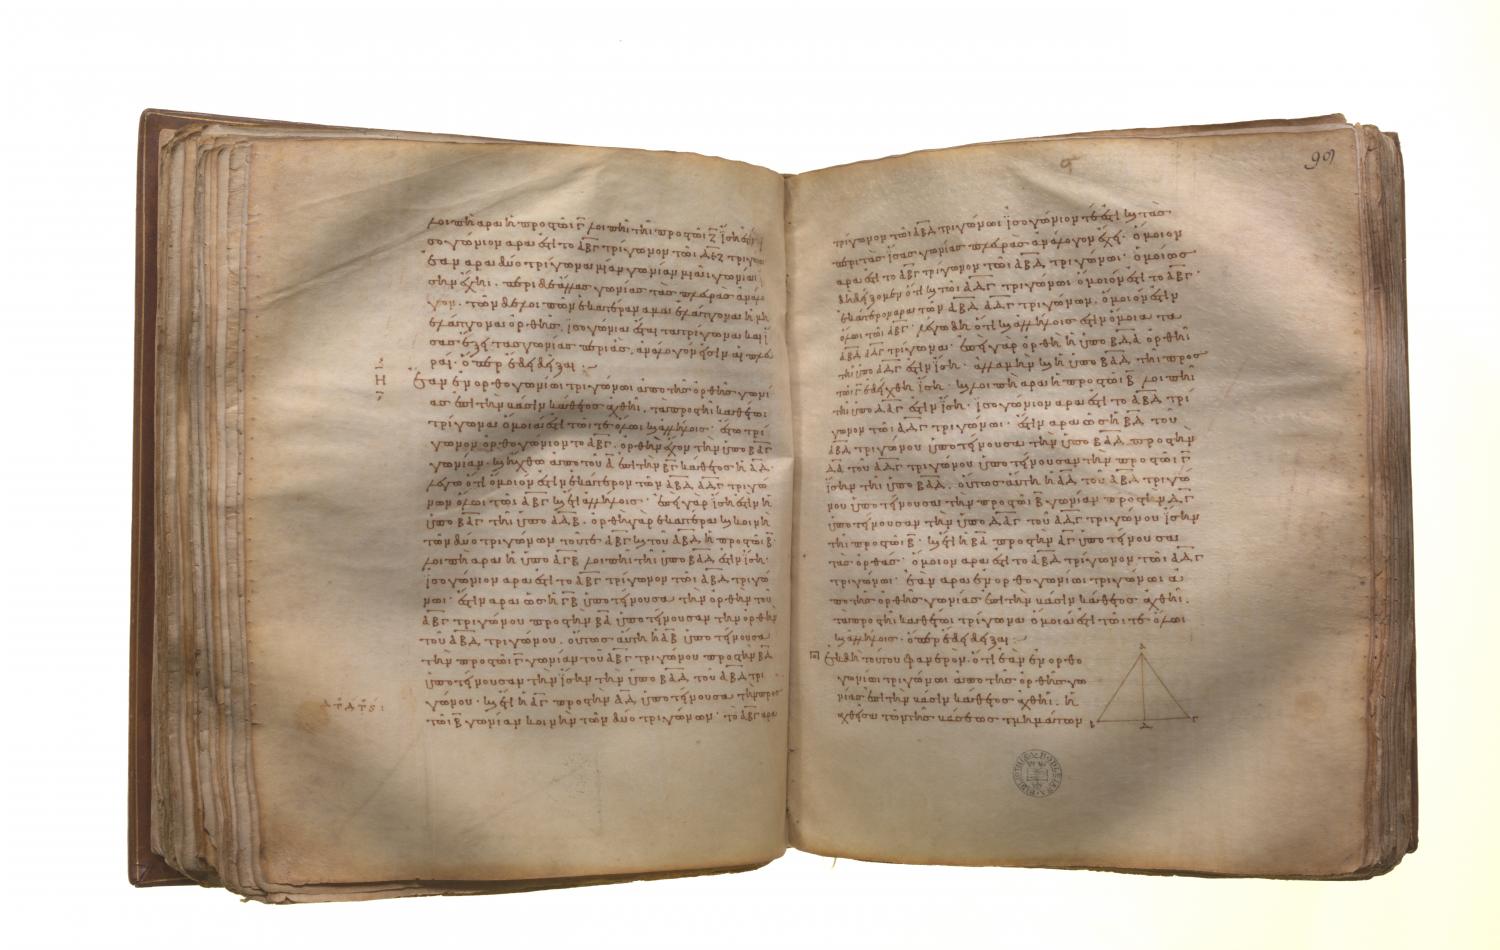 λοιπὴ ἄρα ἡ πρὸς τῶι Γ λοιπῆι τῆι πρὸς τῶι Ζ ἴση ἐστί
σογώνιον ἄρα ἐστὶ τὸ ΑΒΓ τρίγωνον τῶι ΔΕΖ τριγώ
ἐὰν ἄρα δύο τρίγωνα μίαν γωνίαν μιᾶι γωνίαι
σην ἔχηι· περὶ δὲ ἄλλας γωνίας τὰς πλευρὰς ἀνάλο
γον· τῶν δὲ λοιπῶν ἑκατέραν ἅμα ἐλάττονα ἢ μὴ
ἐλάττονα ὀρθῆς, ἰσογώνια ἔσται τὰ τρίγωνα καὶ ἴ
σας ἕξει τὰς γωνίας περὶ ἃς ἀνάλογόν εἰσιν αἱ πλευ
ραί· ὅπερ ἔδει δεῖξαι :~
Η
Ἐὰν ἐν ὀρθογωνίωι τριγώνωι ἀπὸ τῆς ὀρθῆς γωνί
ας ἐπὶ τὴν βάσιν κάθετος ἀχθῆι, τὰ πρὸς τῆι καθέτωι
τρίγωνα ὅμοιά ἐστι τῶι τε ὅλωι καὶ ἀλλήλοις· ἔστω τρί
γωνον ὀρθογώνιον τὸ ΑΒΓ· ὀρθὴν ἔχον τὴν ὑπὸ ΒΑΓ
γωνίαν· καὶ ἤχθω ἀπὸ τοῦ Α ἐπὶ τὴν ΒΓ κάθετος ἡ ΑΔ·
λέγω ὅτι ὅμοιόν ἐστιν ἑκάτερον τῶν ΑΒΔ ΑΔΓ τριγώ
νων ὅλωι τῶι ΑΒΓ καὶ ἔτι ἀλλήλοις· ἐπεὶ γὰρ ἴση ἐστὶν ἡ
ὑπὸ ΒΑΓ τῆι ὑπὸ ΑΔΒ· ὀρθὴ γὰρ ἑκατέρα καὶ κοινὴ
τῶν δύο τριγώνων τοῦ τε ΑΒΓ καὶ τοῦ ΑΒΔ ἡ πρὸς τῶι Β·
λοιπὴ ἄρα ἡ ὑπὸ ΑΓΒ λοιπῆι τῆι ὑπὸ ΒΑΔ ἐστὶν ἴση·
ἰσογώνιον ἄρα ἐστὶ τὸ ΑΒΓ τρίγωνον τῶι ΑΒΔ τριγώ
νωι· ἔστιν ἄρα ὡς ἡ ΓΒ ὑποτείνουσα τὴν ὀρθὴν τοῦ
ΑΒΓ τριγώνου πρὸς τὴν ΒΑ ὑποτείνουσαν τὴν ὀρθὴν
τοῦ ΑΒΔ τριγώνου· οὕτως αὐτὴ ἡ ΑΒ ὑποτείνουσα
τὴν πρὸς τῶι Γ γωνίαν τοῦ ΑΒΓ τριγώνου πρὸς τὴν ΒΔ
ὑποτείνουσαν τὴν ἴσην τὴν ὑπὸ ΒΑΔ τοῦ ΑΒΔ τρι
γώνου· καὶ ἔτι ἡ ΑΓ πρὸς τὴν ΑΔ ὑποτείνουσα τὴν πρὸς
τῶι Β γωνίαν κοινὴν τῶν δύο τριγώνων· τὸ ΑΒΓ ἄρα
99
τρίγωνον τῶι ΑΒΔ τριγώνωι ἰσογώνιόν τέ ἐστι καὶ τὰς
περὶ τὰς ἴσας γωνίας πλευρὰς ἀνάλογον ἔχει· ὅμοιον
ἄρα ἐστὶ τὸ ΑΒΓ τρίγωνον τῶι ΑΒΔ τριγώνωι· ὁμοίως
δὴ δείξομεν ὅτι καὶ τῶι ΑΔΓ τριγώνωι ὅμοιόν ἐστι τὸ ΑΒΓ·
ἑκάτερον ἄρα τῶν ΑΒΔ ΑΔΓ τριγώνων· ὅμοιόν ἐστιν
ὅλωι τῶι ΑΒΓ· λέγω δὴ ὅτι καὶ ἀλλήλοις ἐστὶν ὅμοια τὰ
ΑΒΔ ΑΔΓ τρίγωνα· ἐπεὶ γὰρ ὀρθὴ ἡ ὑπὸ ΒΔΑ ὀρθῆι
τῆι ὑπὸ ΑΔΓ ἐστὶν ἴση· ἀλλὰ μὴν καὶ ἡ ὑπὸ ΒΑΔ τῆι πρὸς
τῶι Γ ἐδείχθη ἴση· καὶ λοιπὴ ἄρα ἡ πρὸς τῶι Β λοιπῆι
τῆι ὑπὸ ΔΑΓ ἐστὶν ἴση· ἰσογώνιον ἄρα ἐστὶ τὸ ΑΒΔ τρί
γωνον τῶι ΑΔΓ τριγώνωι· ἔστιν ἄρα ὡς ἡ ΒΔ τοῦ
ΑΒΔ τριγώνου ὑποτείνουσα τὴν ὑπὸ ΒΑΔ πρὸς τὴν
ΔΑ τοῦ ΑΔΓ τριγώνου ὑποτείνουσαν τὴν πρὸς τῶι Γ
ἴσην τῆι ὑπὸ ΒΑΔ· οὕτως αὐτὴ ἡ ΑΔ τοῦ ΑΒΔ τριγώ
νου ὑποτείνουσα τὴν πρὸς τῶι Β γωνίαν πρὸς τὴν ΔΓ
ὑποτείνουσαν τὴν ὑπὸ ΔΑΓ τοῦ ΑΔΓ τριγώνου ἴσην
τῆι πρὸς τῶι Β· καὶ ἔτι ἡ ΒΑ πρὸς τὴν ΑΓ ὑποτείνουσαι
τὰς ὀρθάς· ὅμοιον ἄρα ἐστὶ τὸ ΑΒΔ τρίγωνον τῶι ΑΔΓ
τριγώνωι· ἐὰν ἄρα ἐν ὀρθογωνίωι τριγώνωι ἀ
πὸ τῆς ὀρθῆς γωνίας ἐπὶ τὴν βάσιν κάθετος ἀχθῆι·
τὰ πρὸς τῆι καθέτωι τρίγωνα ὅμοιά ἐστι τῶι τε ὅλωι
καὶ ἀλλήλοις· ὅπερ ἔδει δεῖξαι :~
Ἐκ δὴ τούτου φανερόν· ὅτι ἐὰν ἐν ὀρθο
γωνίωι τριγώνωι ἀπὸ τῆς ὀρθῆς γω
νίας ἐπὶ τὴν βάσιν κάθετος ἀχθῆι· ἡ
ἀχθεῖσα τῶν τῆς βάσεως τμημάτων
Α
Β Δ Γ
BIBLIOTHECA BODLEIANA